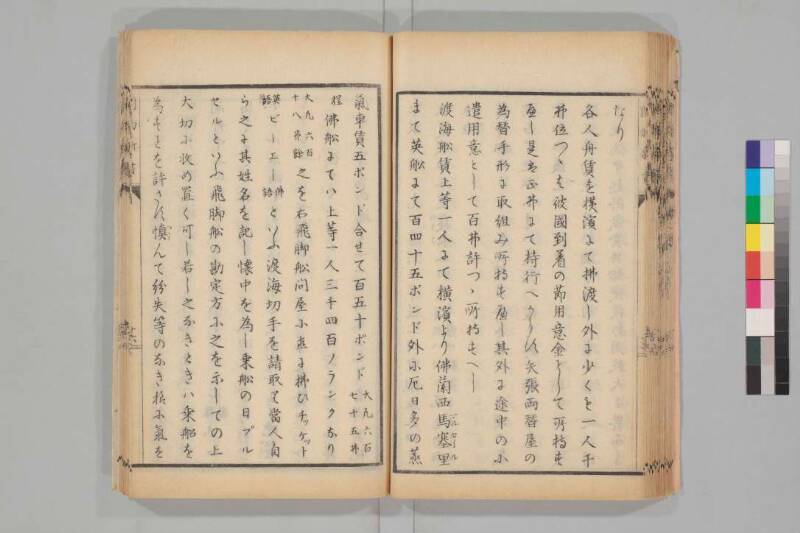 なり
各人舟賃を横濱にて拂渡し外に少くも一人千
弗位つゝも彼國到着の節用意金として所持す
へし是も正弗にて持行へからす矢張両替屋の
為替手形に取組み所持すへし其外に途中の小
遣用意として百弗許つゝ所持すへし
渡海舩賃上等一人にて横濱より佛蘭西馬塞里
まて英舩にて百四十五ポンド外に尼日多の蒸
氣車賃五ポンド合せて百五十ポンド 大凡六百七十五弗
程佛舩にてハ上等一人三千四百フランクなり
大凡六百十八弗餘 之を右飛脚舩問屋に至て拂ひチッケット
英語ビーエー 佛語 といふ渡海切手を請取り當人自
ら之に其姓名を記し懐中を為し乗舩の日プル
セルといふ飛脚舩の勘定方に之を示しての上
大切に收め置く可し若し之なきときハ乗舩を
為すことを許さす慎んて紛失等のなき様に氣を